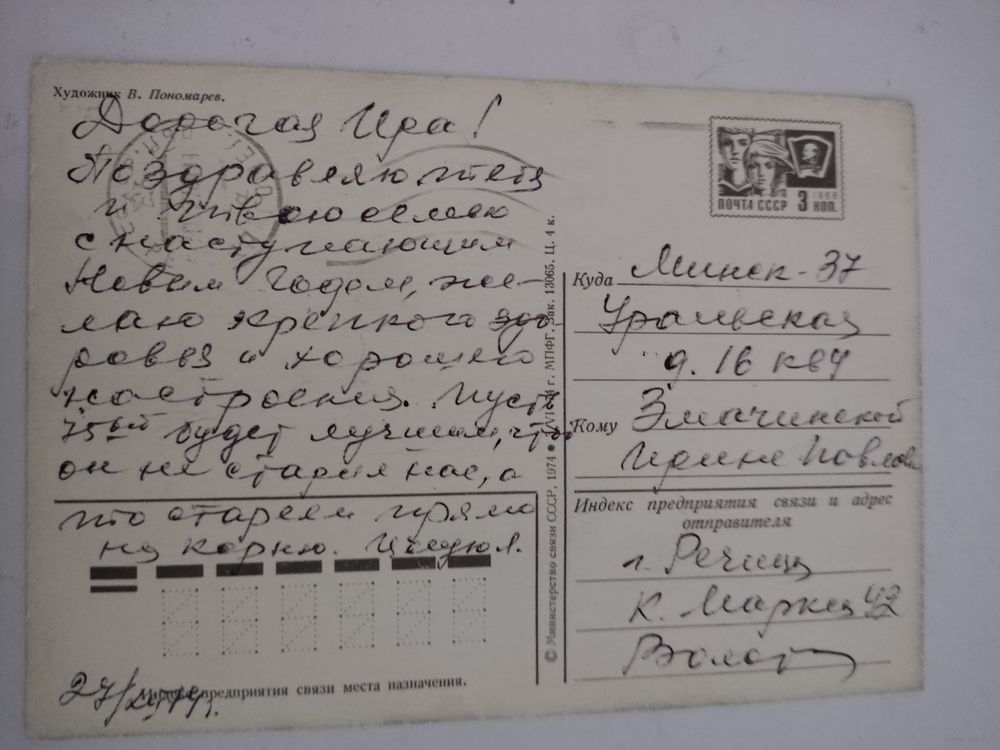 Художник В. Пономарев.
Дорогая Ира!
Поздравляю тебя
и твою семью
с наступающим
Новым Годом, же-
лаю крепкого здо-
ровья и хорошего
настроения. Пусть
75ый будет лучшим, чтоб
он не старил нас, а
то стареем прямо
на корню. Целую я.
27/XII 74г.
Индекс предприятия связи места назначения.
© Министерство связи СССР, 1974 г. МПФГ. Зак. 13065. Ц. 4 к.
ПОЧТА СССР 3 КОП. 1966
Куда Минск-37
Уральская
д. 16 кв 4
Кому Змачинской
Ирине Павловн
Индекс предприятия связи и адрес
отправителя
г. Речица
К. Маркса 42